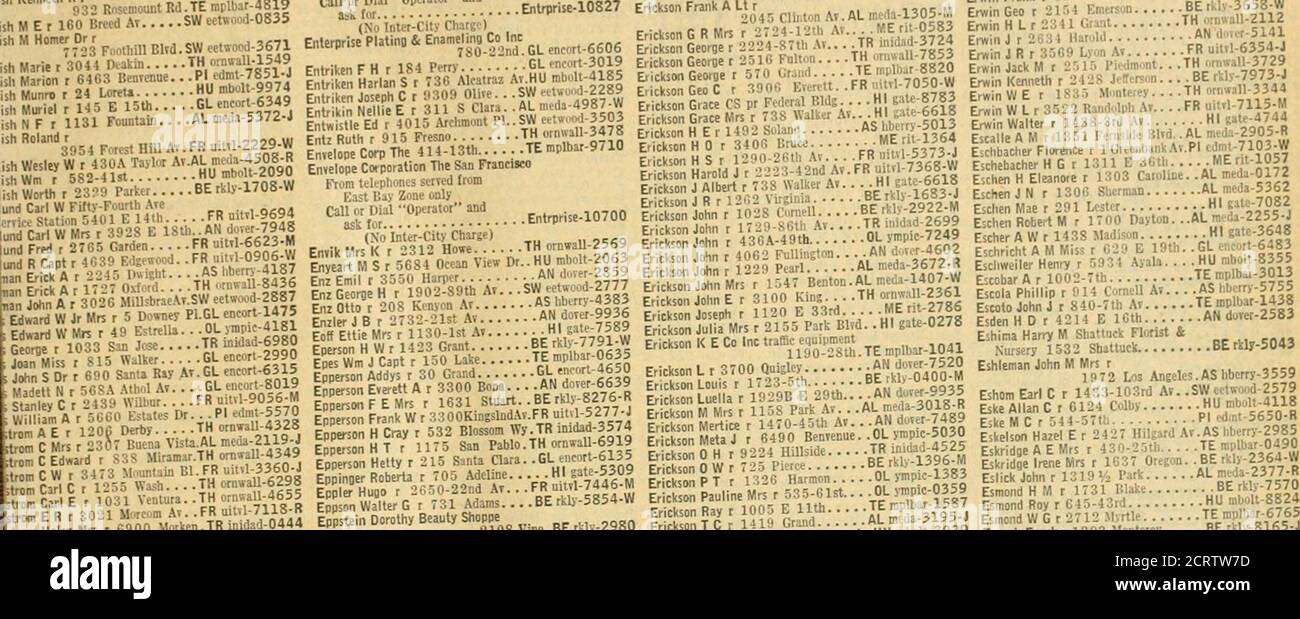 932 Rosemount Rd. TE mplbar-4819
ish M E r 160 Breed Av.....SW eetwood-0835
ish M Homer Dr r
7723 Foothill Blvd. SW eetwood-3671
ish Marie r 3044 Deakin.....TH ornwall-1549
ish Marion r 6463 Benvenue...PI edmt-7851-J
ish Munro r 24 Loreta.......HU mbolt-9974
ish Muriel r 145 E 15th.....GL encort-6349
ish N F r 1131 Fountain....AL meda-5372-J
ish Roland r
3954 Forest Hill Av. FR uitvl-2229-W
ish Wesley W r 430A Taylor Av. AL meda-4508-R
ish Wm r 582-41st........HU mbolt-2090
ish Worth r 2329 Parker.....BE rkly-1708-W
und Carl W Fifty-Fourth Ave
ervice Station 5401 E 14th.....FR uitvl-9694
und Carl W Mrs r 3928 E 18th..AN dover-7948
und Fred r 2765 Garden.....FR uitvl-6623-M
und R Capt r 4639 Edgewood..FR uitvl-0906-W
man Erick A r 2245 Dwight....AS hberry-4187
man Erick A r 1727 Oxford....TH ornwall-8436
man John A r 3026 MillsbraeAv. SW eetwood-2887
Edward W Jr Mrs r 5 Downey Pl. GL encort-1475
Edward W Mrs r 49 Estrella...OL ympic-4181
George r 1033 San Jose.....TR inidad-6980
Joan Miss r 815 Walker.....GL encort-2990
John S Dr r 690 Santa Ray Av. GL encort-6315
Madett N r 568A Athol Av...GL encort-8019
Stanley C r 2439 Wilbur....FR uitvl-9056-M
William A r 5660 Estates Dr...PI edmt-5570
strom A E r 1206 Derby.....TH ornwall-4328
strom C Mrs r 2307 Buena Vista. AL meda-2119-J
strom C Edward r 838 Miramar. TH ornwall-4349
strom C W r 3473 Mountain Bl. FR uitvl-3360-J
strom Carl C r 1255 Wash...TH ornwall-6298
strom Carl E r 1031 Ventura..TH ornwall-4655
strom E R r 3031 Morcom Av..FR uitvl-7118-R
6900 Morken. TR inidad-0444
ask for..........Entrprise-10827
(No Inter-City Charge)
Enterprise Plating & Enameling Co Inc
780-22nd. GL encort-6606
Entriken F H r 184 Perry.......GL encort-3019
Entriken Harlan S r 736 Alcatraz Av. HU mbolt-4185
Entriken Joseph C r 9309 Olive...SW eetwood-2289
Entrikin Nellie E r 311 S Clara..AL meda-4987-W
Entwistle Ed r 4015 Archmont Pl..SW eetwood-3503
Entz Ruth r 915 Fresno........TH ornwall-3478
Envelope Corp The 414-13th......TE mplbar-9710
Envelope Corporation The San Francisco
From telephones served from
East Bay Zone only
Call or Dial "Operator" and
ask for..........Entrprise-10700
(No Inter-City Charge)
Envik Mrs K r 2312 Howe......TH ornwall-2569
Enyeart M S r 5684 Ocean View Dr..HU mbolt-2063
Enz Emil r 3550 Harper........AN dover-2859
Enz George H r 1902-89th Av...SW eetwood-2777
Enz Otto r 208 Kenyon Av......AS hberry-4383
Enzler J B r 2732-21st Av......AN dover-9936
Eoff Ettie Mrs r 1130-1st Av....HI gate-7589
Eperson H W r 1423 Grant......BE rkly-7791-W
Epes Wm J Capt r 150 Lake......TE mplbar-0635
Epperson Addys r 30 Grand......GL encort-4650
Epperson Everett A r 3300 Bona....AN dover-6639
Epperson F E Mrs r 1631 Stuart..BE rkly-8276-R
Epperson Frank W r 3300KingslndAv. FR uitvl-5277-J
Epperson H Cray r 532 Blossom Wy. TR inidad-3574
Epperson H T r 1175 San Pablo. TH ornwall-6919
Epperson Hetty r 215 Santa Clara..GL encort-6135
Eppinger Roberta r 705 Adeline.....HI gate-5309
Eppler Hugo r 2650-22nd Av....FR uitvl-7446-M
Eppson Walter G r 731 Adams....BE rkly-5854-W
Eppstein Dorothy Beauty Shoppe
2108 Vine. BE rkly-2980
Erickson Frank A Lt r
2045 Clinton Av. AL meda-1305-M
Erickson G R Mrs r 2724-12th Av....ME rit-0583
Erickson George r 2224-87th Av....TR inidad-3724
Erickson George r 2516 Fulton....TH ornwall-7853
Erickson George r 570 Grand......TE mplbar-8820
Erickson Geo C r 3906 Everett..FR uitvl-7050-W
Erickson Grace CS pr Federal Bldg....HI gate-8783
Erickson Grace Mrs r 738 Walker Av...HI gate-6618
Erickson H E r 1492 Solano......AS hberry-5013
Erickson H O r 3406 Bruce........ME rit-1364
Erickson H S r 1290-26th Av....FR uitvl-5373-J
Erickson Harold J r 2223-42nd Av. FR uitvl-7368-W
Erickson J Albert r 738 Walker Av...HI gate-6618
Erickson J R r 1262 Virginia.....BE rkly-1683-J
Erickson John r 1028 Cornell....BE rkly-2922-M
Erickson John r 1729-86th Av....TR inidad-2699
Erickson John r 436A-49th......OL ympic-7249
Erickson John r 4062 Fullington....AN dover-4602
Erickson John r 1229 Pearl.....AL meda-3672-R
Erickson John Mrs r 1547 Benton. AL meda-1407-W
Erickson John E r 3100 King....TH ornwall-2361
Erickson Joseph r 1120 E 33rd......ME rit-2786
Erickson Julia Mrs r 2155 Park Blvd..HI gate-0278
Erickson K E Co Inc traffic equipment
1190-28th. TE mplbar-1041
Erickson L r 3700 Quigley.......AN dover-7520
Erickson Louis r 1723-5th......BE rkly-0400-M
Erickson Luella r 1929B E 29th....AN dover-9935
Erickson M M Mrs r 1158 Park Av...AL meda-3018-R
Erickson Mertice r 1470-45th Av...AN dover-7489
Erickson Meta J r 6490 Benvenue..OL ympic-5030
Erickson O H r 9224 Hillside.....TR inidad-4525
Erickson O W r 725 Pierce......BE rkly-1396-M
Erickson P T r 1326 Harmon.....OL ympic-1383
Erickson Pauline Mrs r 535-61st....OL ympic-0359
Erickson Ray r 1005 E 11th......TE mplbar-1587
Erickson T C r 1419 Grand......AL meda-3195-J
Erwin Geo r 2154 Emerson......BE rkly-3658-W
Erwin H L r 2341 Grant........TH ornwall-2112
Erwin J r 2634 Harold..........AN dover-5141
Erwin J R r 3569 Lyon Av......FR uitvl-6354-J
Erwin Jack M r 2515 Piedmont...TH ornwall-3729
Erwin Kenneth r 2428 Jefferson....BE rkly-7973-J
Erwin W E r 1835 Monterey....TH ornwall-3344
Erwin W L r 3522 Randolph Av...FR uitvl-7115-M
Erwin Walter r 1438-3rd Av......HI gate-4744
Escalle A M r 1351 Fernside Blvd..AL meda-2905-R
Eschbacher Florence r 1 Glenbank Av. PI edmt-7103-W
Eschebacher H G r 1311 E 36th......ME rit-1057
Eschen H Eleanore r 1303 Caroline..AL meda-0172
Eschen J N r 1306 Sherman......AL meda-5362
Eschen Mae r 291 Lester.........HI gate-7082
Eschen Robert M r 1700 Dayton...AL meda-2255-J
Escher A W r 1438 Madison........HI gate-3648
Eschricht A M Miss r 629 E 19th..GL encort-6483
Eschweiler Henry r 5934 Ayala....HU mbolt-8355
Escobar A r 1002-7th..........TE mplbar-3013
Escola Phillip r 914 Cornell Av....AS hberry-5755
Escoto John J r 840-7th Av.....TE mplbar-1438
Esden H D r 4214 E 16th........AN dover-2583
Eshima Harry M Shattuck Florist &
Nursery 1532 Shattuck........BE rkly-5043
Eshleman John M Mrs r
1972 Los Angeles. AS hberry-3559
Eshom Earl C r 1433-103rd Av..SW eetwood-2579
Eske Allan C r 6124 Colby......HU mbolt-4118
Eske M C r 544-57th.........PI edmt-5650-R
Eskelson Hazel E r 2427 Hilgard Av. AS hberry-2985
Eskridge A E Mrs r 430-25th.....TE mplbar-0490
Eskridge Irene Mrs r 1637 Oregon..BE rkly-2364-W
Eslick John r 1319½ Park......AL meda-2377-R
Esmond H M r 1731 Blake........BE rkly-7570
Esmond Roy r 645-43rd.......HU mbolt-8824
Esmond W G r 2712 Myrtle.....TE mplbar-6765
BE rkly-8165-J
alamy
Image ID: 2CRTW7D
www.alamy.com